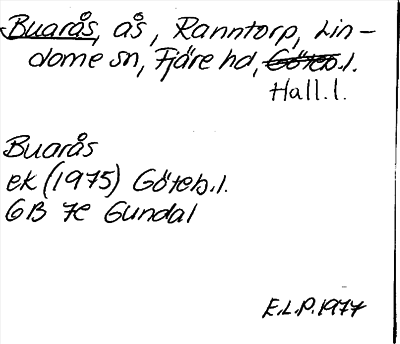 Buarås, ås, Ranntorp, Lin-
dome sn, Fjäre hd, Göteb.l.
Hall.l.
Buarås
ek (1975) Göteb.l.
6B 7e Gundal
E.L.P. 1977